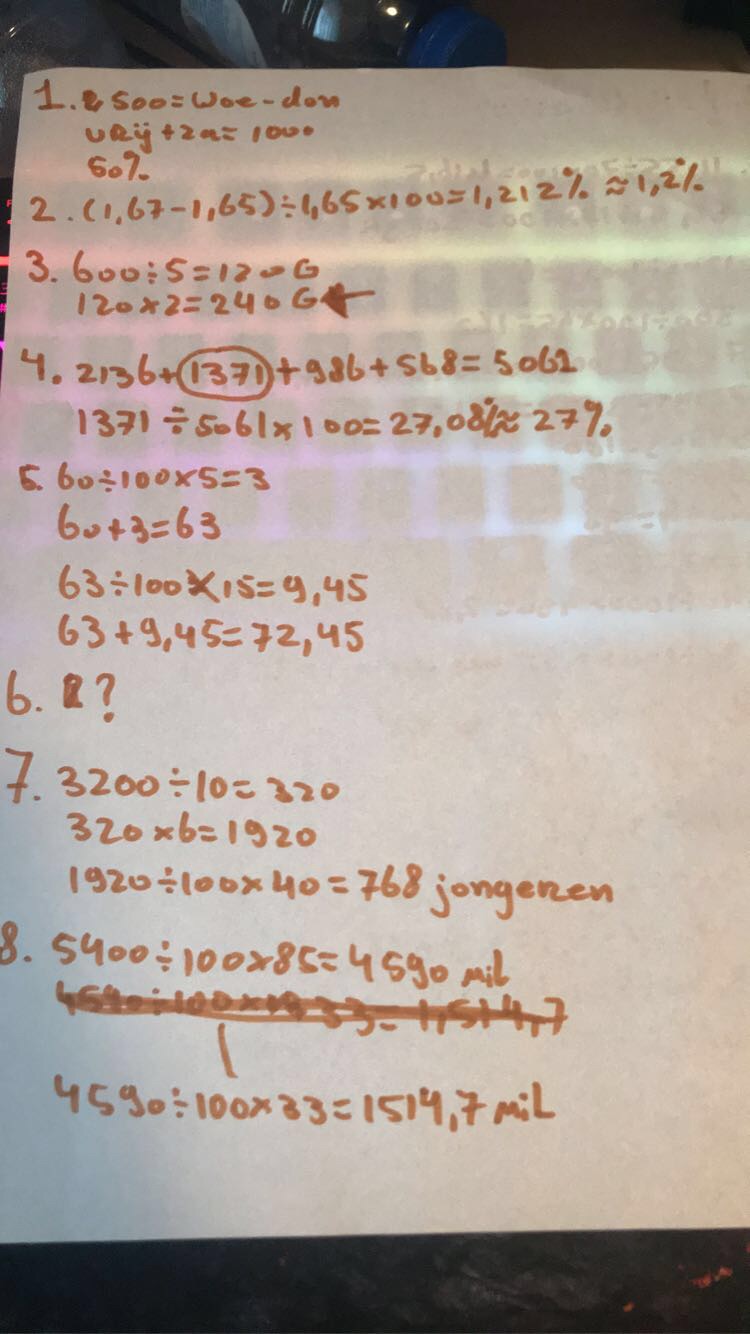 1. 2500=woe-don
vrij+za=1000
50%
2. (1,67-1,65)÷1,65×100=1,212% ≈1,2%
3. 600÷5=120G
120×2=240G
4. 2136+1371+986+568=5061
1371÷5061×100=27,08%≈27%
5. 60÷100×5=3
60+3=63
63÷100×15=9,45
63+9,45=72,45
6. ?
7. 3200÷10=320
320×6=1920
1920÷100×40=768 jongeren
8. 5400÷100×85=4590 mil
4590÷100×33=1514,7 mil